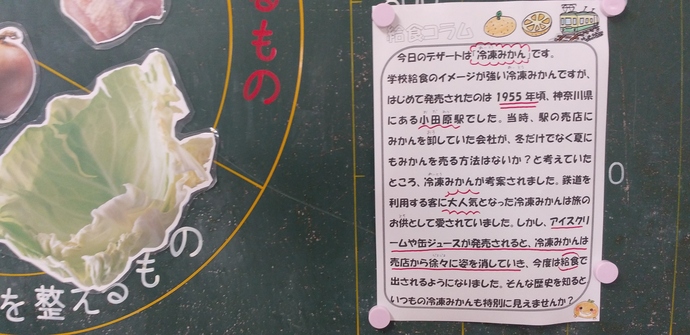 るもの
を整えるもの
給食コラム
今日のデザートは「冷凍みかん」です。
学校給食のイメージが強い冷凍みかんですが、
はじめて発売されたのは 1955 年頃、神奈川県
にある小田原駅でした。当時、駅の売店に
みかんを卸していた会社が、冬だけでなく夏に
もみかんを売る方法はないか？と考えていた
ところ、冷凍みかんが考案されました。鉄道を
利用する客に大人気となった冷凍みかんは旅の
お供として愛されていました。しかし、アイスクリ
ームや缶ジュースが発売されると、冷凍みかんは
売店から徐々に姿を消していき、今度は給食で
出されるようになりました。そんな歴史を知ると
いつもの冷凍みかんも特別に見えませんか？